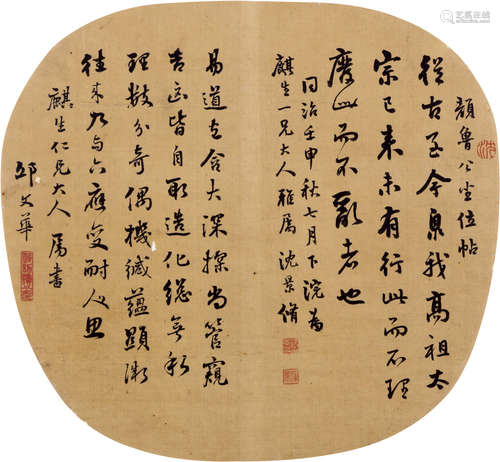 顏魯公坐位帖
從古至今自我高祖太
宗已来未有行此而不理
廢此而不亂者也
同治壬申秋七月下浣為
麒生一兄大人雅屬 沈景脩
易道玄含大深探尚管窺
吉凶皆自取造化総無私
理数分奇偶機緘蘊顯微
往来九与六應變耐人思
麒生仁兄大人 屬書
邱文華